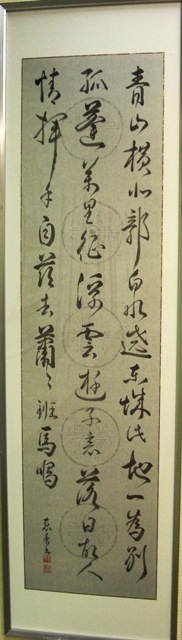 青山橫北郭白水遶東城此地一為別
孤蓬萬里征浮雲遊子意落日故人
情揮手自茲去蕭々班馬鳴